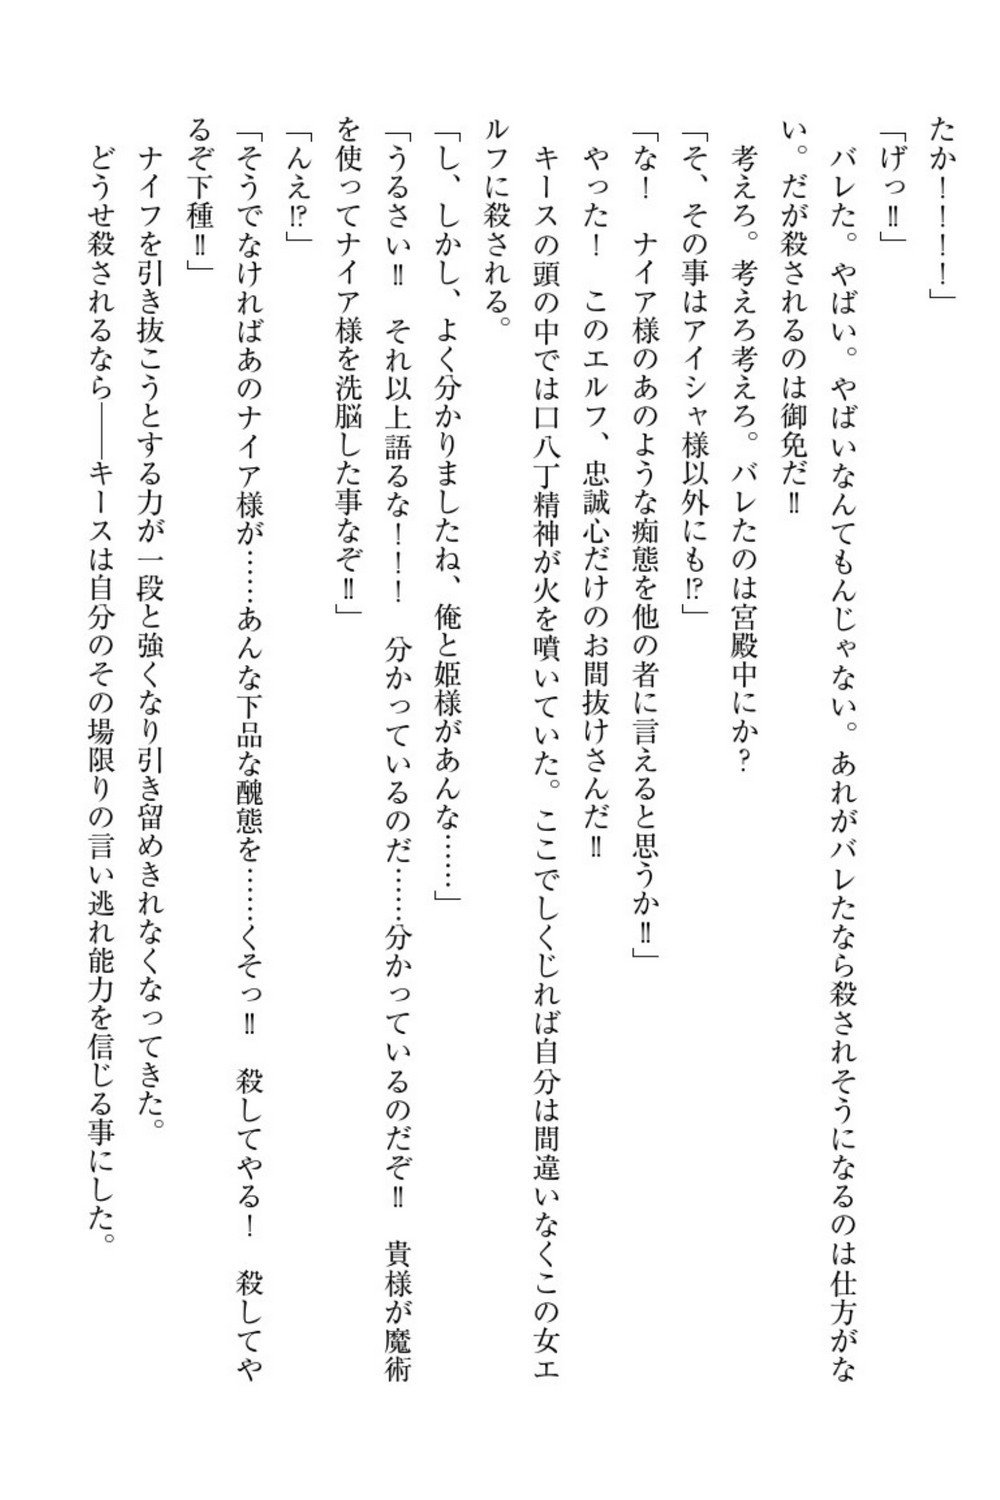 たか！！！！」
「げっ‼」
　バレた。やばい。やばいなんてもんじゃない。あれがバレたなら殺されそうになるのは仕方がな
い。だが殺されるのは御免だ‼
　考えろ。考えろ考えろ。バレたのは宮殿中にか？
「そ、その事はアイシャ様以外にも⁉」
「な！　ナイア様のあのような痴態を他の者に言えると思うか‼」
　やった！　このエルフ、忠誠心だけのお間抜けさんだ‼
　キースの頭の中では口八丁精神が火を噴いていた。ここでしくじれば自分は間違いなくこの女エ
ルフに殺される。
「し、しかし、よく分かりましたね、俺と姫様があんな……」
「うるさい‼　それ以上語るな！！！　分かっているのだ……分かっているのだぞ‼　貴様が魔術
を使ってナイア様を洗脳した事なぞ‼」
「んえ⁉」
「そうでなければあのナイア様が……あんな下品な醜態を……くそっ‼　殺してやる！　殺してや
るぞ下種‼」
　ナイフを引き抜こうとする力が一段と強くなり引き留めきれなくなってきた。
　どうせ殺されるなら――キースは自分のその場限りの言い逃れ能力を信じる事にした。